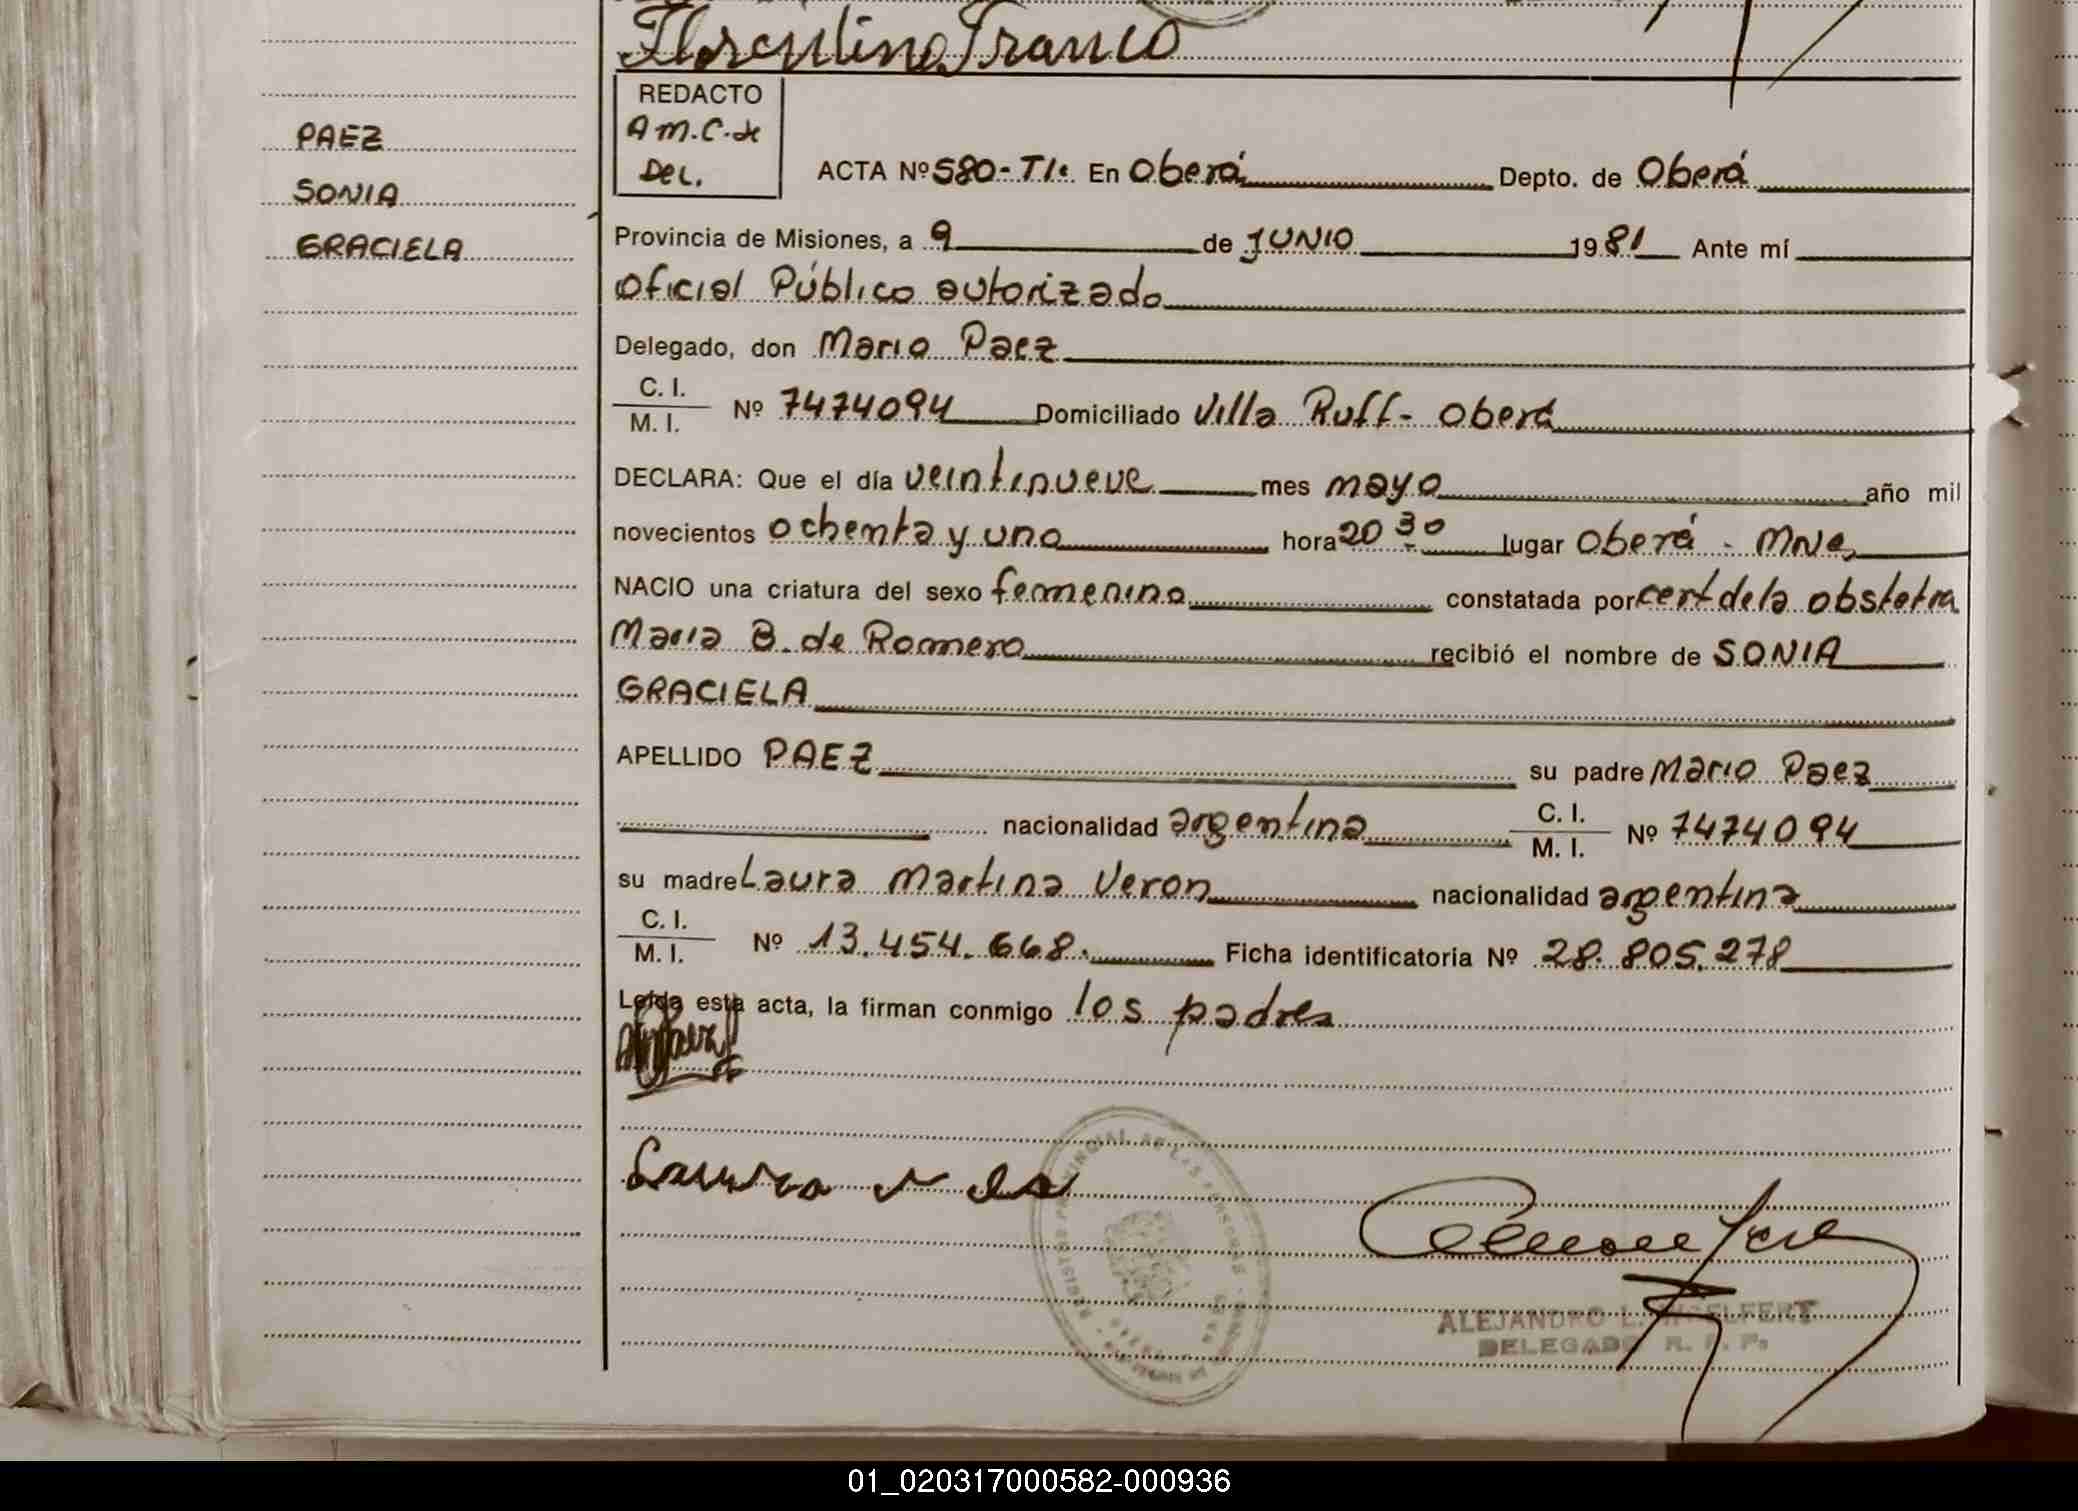 Florentino Franco
REDACTO
A M.C. de
Del.
PAEZ
SONIA
GRACIELA
ACTA Nº 580-T1e. En Oberá Depto. de Oberá
Provincia de Misiones, a 9 de JUNIO 1981 Ante mí
Oficial Público autorizado
Delegado, don Mario Paez
C. I.
M. I. Nº 7474094 Domiciliado Villa Ruff - Oberá
DECLARA: Que el día veintinueve mes mayo año mil
novecientos ochenta y uno hora 20 30 lugar Oberá - Mnes
NACIO una criatura del sexo femenino constatada por cert de la obstetra
Maria B. de Romero recibió el nombre de SONIA
GRACIELA
APELLIDO PAEZ su padre Mario Paez
nacionalidad argentina C. I.
M. I. Nº 7474094
su madre Laura Martina Veron nacionalidad argentina
C. I.
M. I. Nº 13.454.668. Ficha identificatoria Nº 28.805.278
Leída esta acta, la firman conmigo los padres
ALEJANDRO L.
DELEGADO R. P. P.
01_020317000582-000936